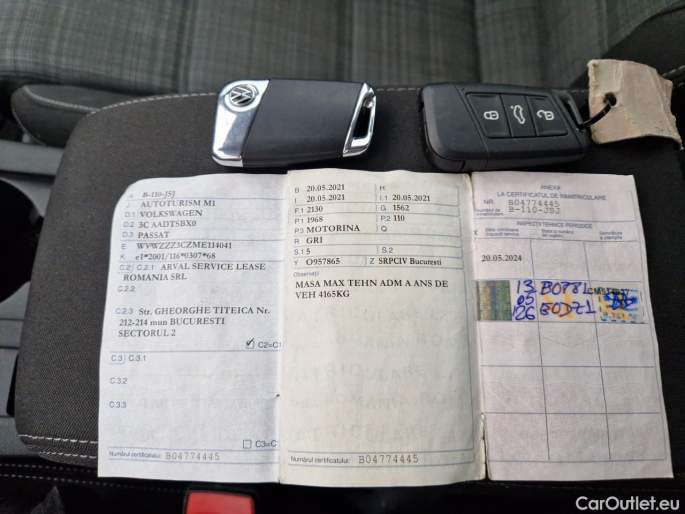 A B-110-JSJ
J AUTOTURISM M1
D.1 VOLKSWAGEN
D.2 3C AADTSBX0
D.3 PASSAT
E WVWZZZ3CZME114041
K e1*2001/116*0307*68
C.2 C.2.1 ARVAL SERVICE LEASE
ROMANIA SRL
C.2.2
C.2.3 Str. GHEORGHE TITEICA Nr.
212-214 mun BUCURESTI
SECTORUL 2
C2=C1
C.3 C.3.1
C.3.2
C.3.3
C3=C
Numărul certificatului: B04774445
B 20.05.2021 H
I 20.05.2021 I.1 20.05.2021
F.1 2130 G 1562
P.1 1968 P.2 110
P.3 MOTORINA Q
R GRI
S.1 5 S.2
Y O957865 Z SRPCIV Bucuresti
Observaţii
MASA MAX TEHN ADM A ANS DE
VEH 4165KG
Numărul certificatului: B04774445
ANEXA
LA CERTIFICATUL DE ÎNMATRICULARE
NR. B04774445
Număr de înmatriculare B-110-JSJ
INSPECŢII TEHNICE PERIODICE
X
20.05.2024
13
05
126
CarOutlet.eu